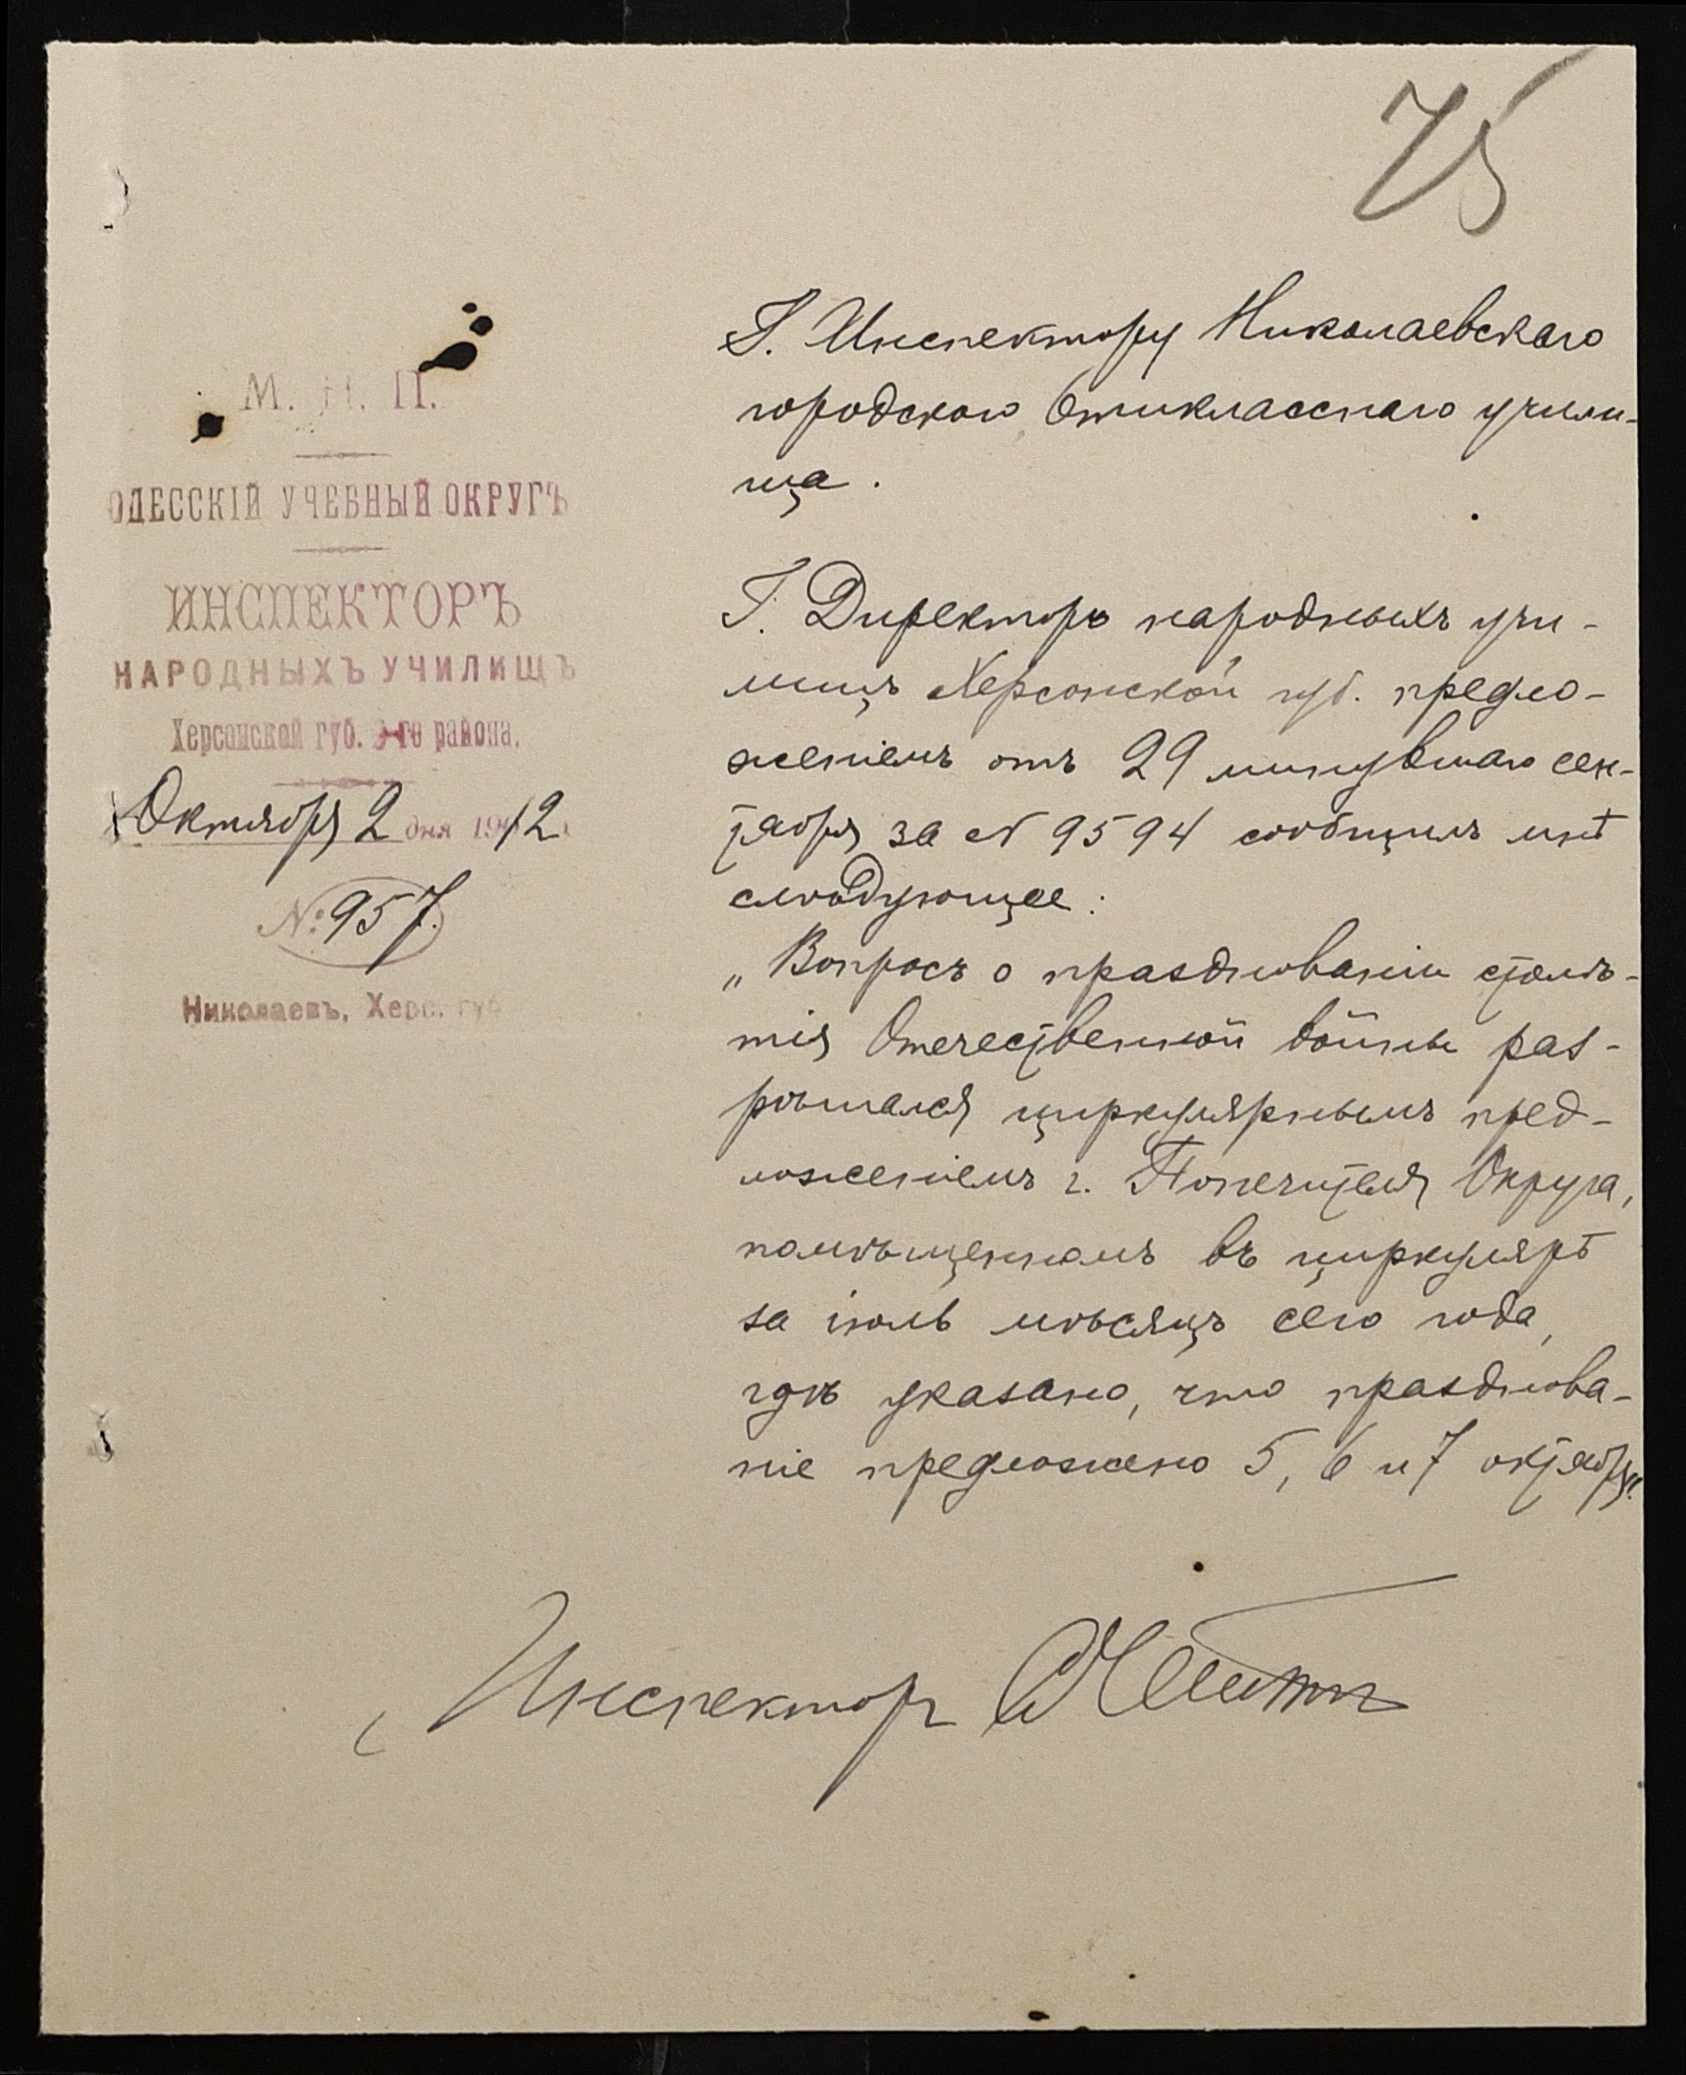 75
М. Н. П.
ОДЕССКІЙ УЧЕБНЫЙ ОКРУГЪ
ИНСПЕКТОРЪ
НАРОДНЫХЪ УЧИЛИЩЪ
Херсонской губ. го района.
Октября 2 дня 1912
№ 957.
Николаевъ, Херс. губ
Г. Инспектору Николаевскаго
городского 6тикласснаго учили-
ща.
Г. Директоръ народныхъ учи-
лищъ Херсонской губ. предло-
женіемъ отъ 29 минувшаго сен-
тября за № 9594 сообщилъ мнѣ
слѣдующее:
„Вопросъ о празднованіи столѣ-
тія Отечественной войны раз-
рѣшался циркулярнымъ пред-
ложеніемъ г. Попечителя Округа,
помѣщеннымъ въ циркулярѣ
за іюль мѣсяцъ сего года,
гдѣ указано, что празднова-
ніе предложено 5, 6 и 7 октября“.
Инспектор